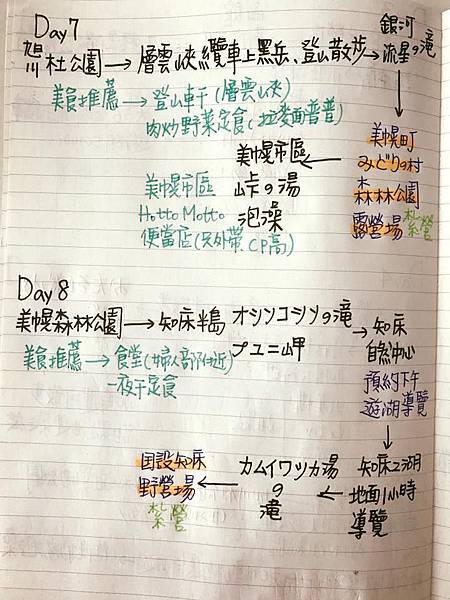 Day7
旭川 杜公園 → 層雲峽纜車上黑岳、登山散步 → 銀河流星の滝
美食推薦 → 登山軒(層雲峽)
肉炒野菜定食(拉麵普普)
美幌町
みどりの村
森林公園
露營場 紮營
美幌市區
峠の湯
泡澡
美幌市區
Hotto Motto
便當店(只外帶、CP高)
Day 8
美幌森林公園 → 知床半島 オシンコシンの滝
プユニ岬
→ 知床
自然中心
預約下午
遊湖導覽
美食推薦 → 食堂(婦人部附近)
一夜干定食
知床五湖
地面1小時
導覽
カムイワッカ湯
の
滝
国設知床
野營場
紮營